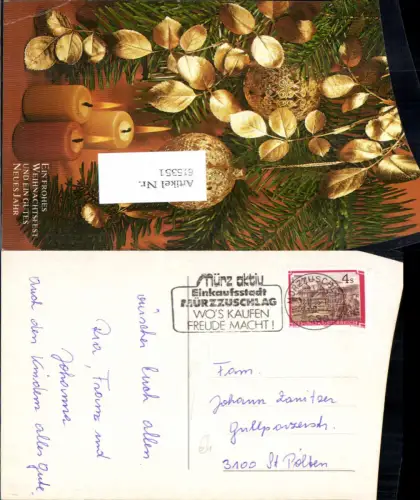 EIN FROHES
WEIHNACHTSFEST
UND EIN GUTES
NEUES JAHR
Artikel Nr.
615351
Mürz aktiv
Einkaufsstadt
MÜRZZUSCHLAG
WO'S KAUFEN
FREUDE MACHT!
MÜRZZUSCHLAG
4 S
wünschen Euch allen
Pia, Franz und
Johanna
Auch den Kindern alles Gute.
Fam.
Johann
Grillparzerstr.
3100 St Pölten